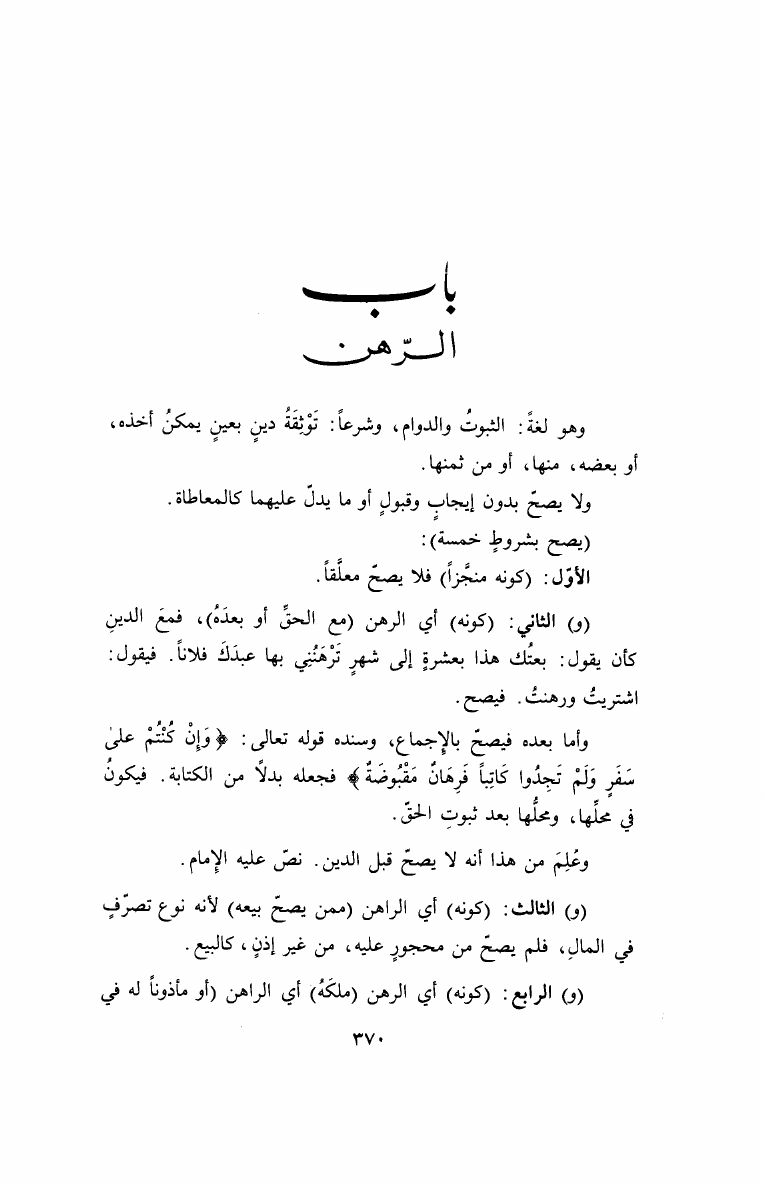 باب
الرّهن
وهو لغةً: الثبوتُ والدوام، وشرعاً: تَوْثِقَةُ دينٍ بعينٍ يمكنُ أخذه،
أو بعضه، منها، أو من ثمنها.
ولا يصحّ بدون إيجابٍ وقبولٍ أو ما يدلّ عليهما كالمعاطاة.
(يصح بشروطٍ خمسة):
الأوّل: (كونه منجَّزاً) فلا يصحّ معلَّقاً.
(و) الثاني: (كونه) أي الرهن (مع الحقِّ أو بعدَهُ)، فمعَ الدينِ
كأن يقول: بعتُك هذا بعشرةٍ إلى شهرٍ تَرْهَنُنِي بها عبدَكَ فلاناً. فيقول:
اشتريتُ ورهنتُ. فيصح.
وأما بعده فيصحّ بالإجماع، وسنده قوله تعالى: ﴿وَإِنْ كُنْتُمْ علىٰ
سَفَرٍ وَلَمْ تَجِدُوا كَاتِباً فَرِهَانٌ مَقْبُوضَةٌ﴾ فجعله بدلًا من الكتابة. فيكونُ
في محلِّها، ومحلُّها بعد ثبوتِ الحقّ.
وعُلِمَ من هذا أنه لا يصحّ قبل الدين. نصّ عليه الإمام.
(و) الثالث: (كونه) أي الراهن (ممن يصحّ بيعه) لأنه نوع تصرّفٍ
في المالِ، فلم يصحّ من محجورٍ عليه، من غير إذنٍ، كالبيع.
(و) الرابع: (كونه) أي الرهن (ملكَهُ) أي الراهن (أو مأذوناً له في
٣٧٠